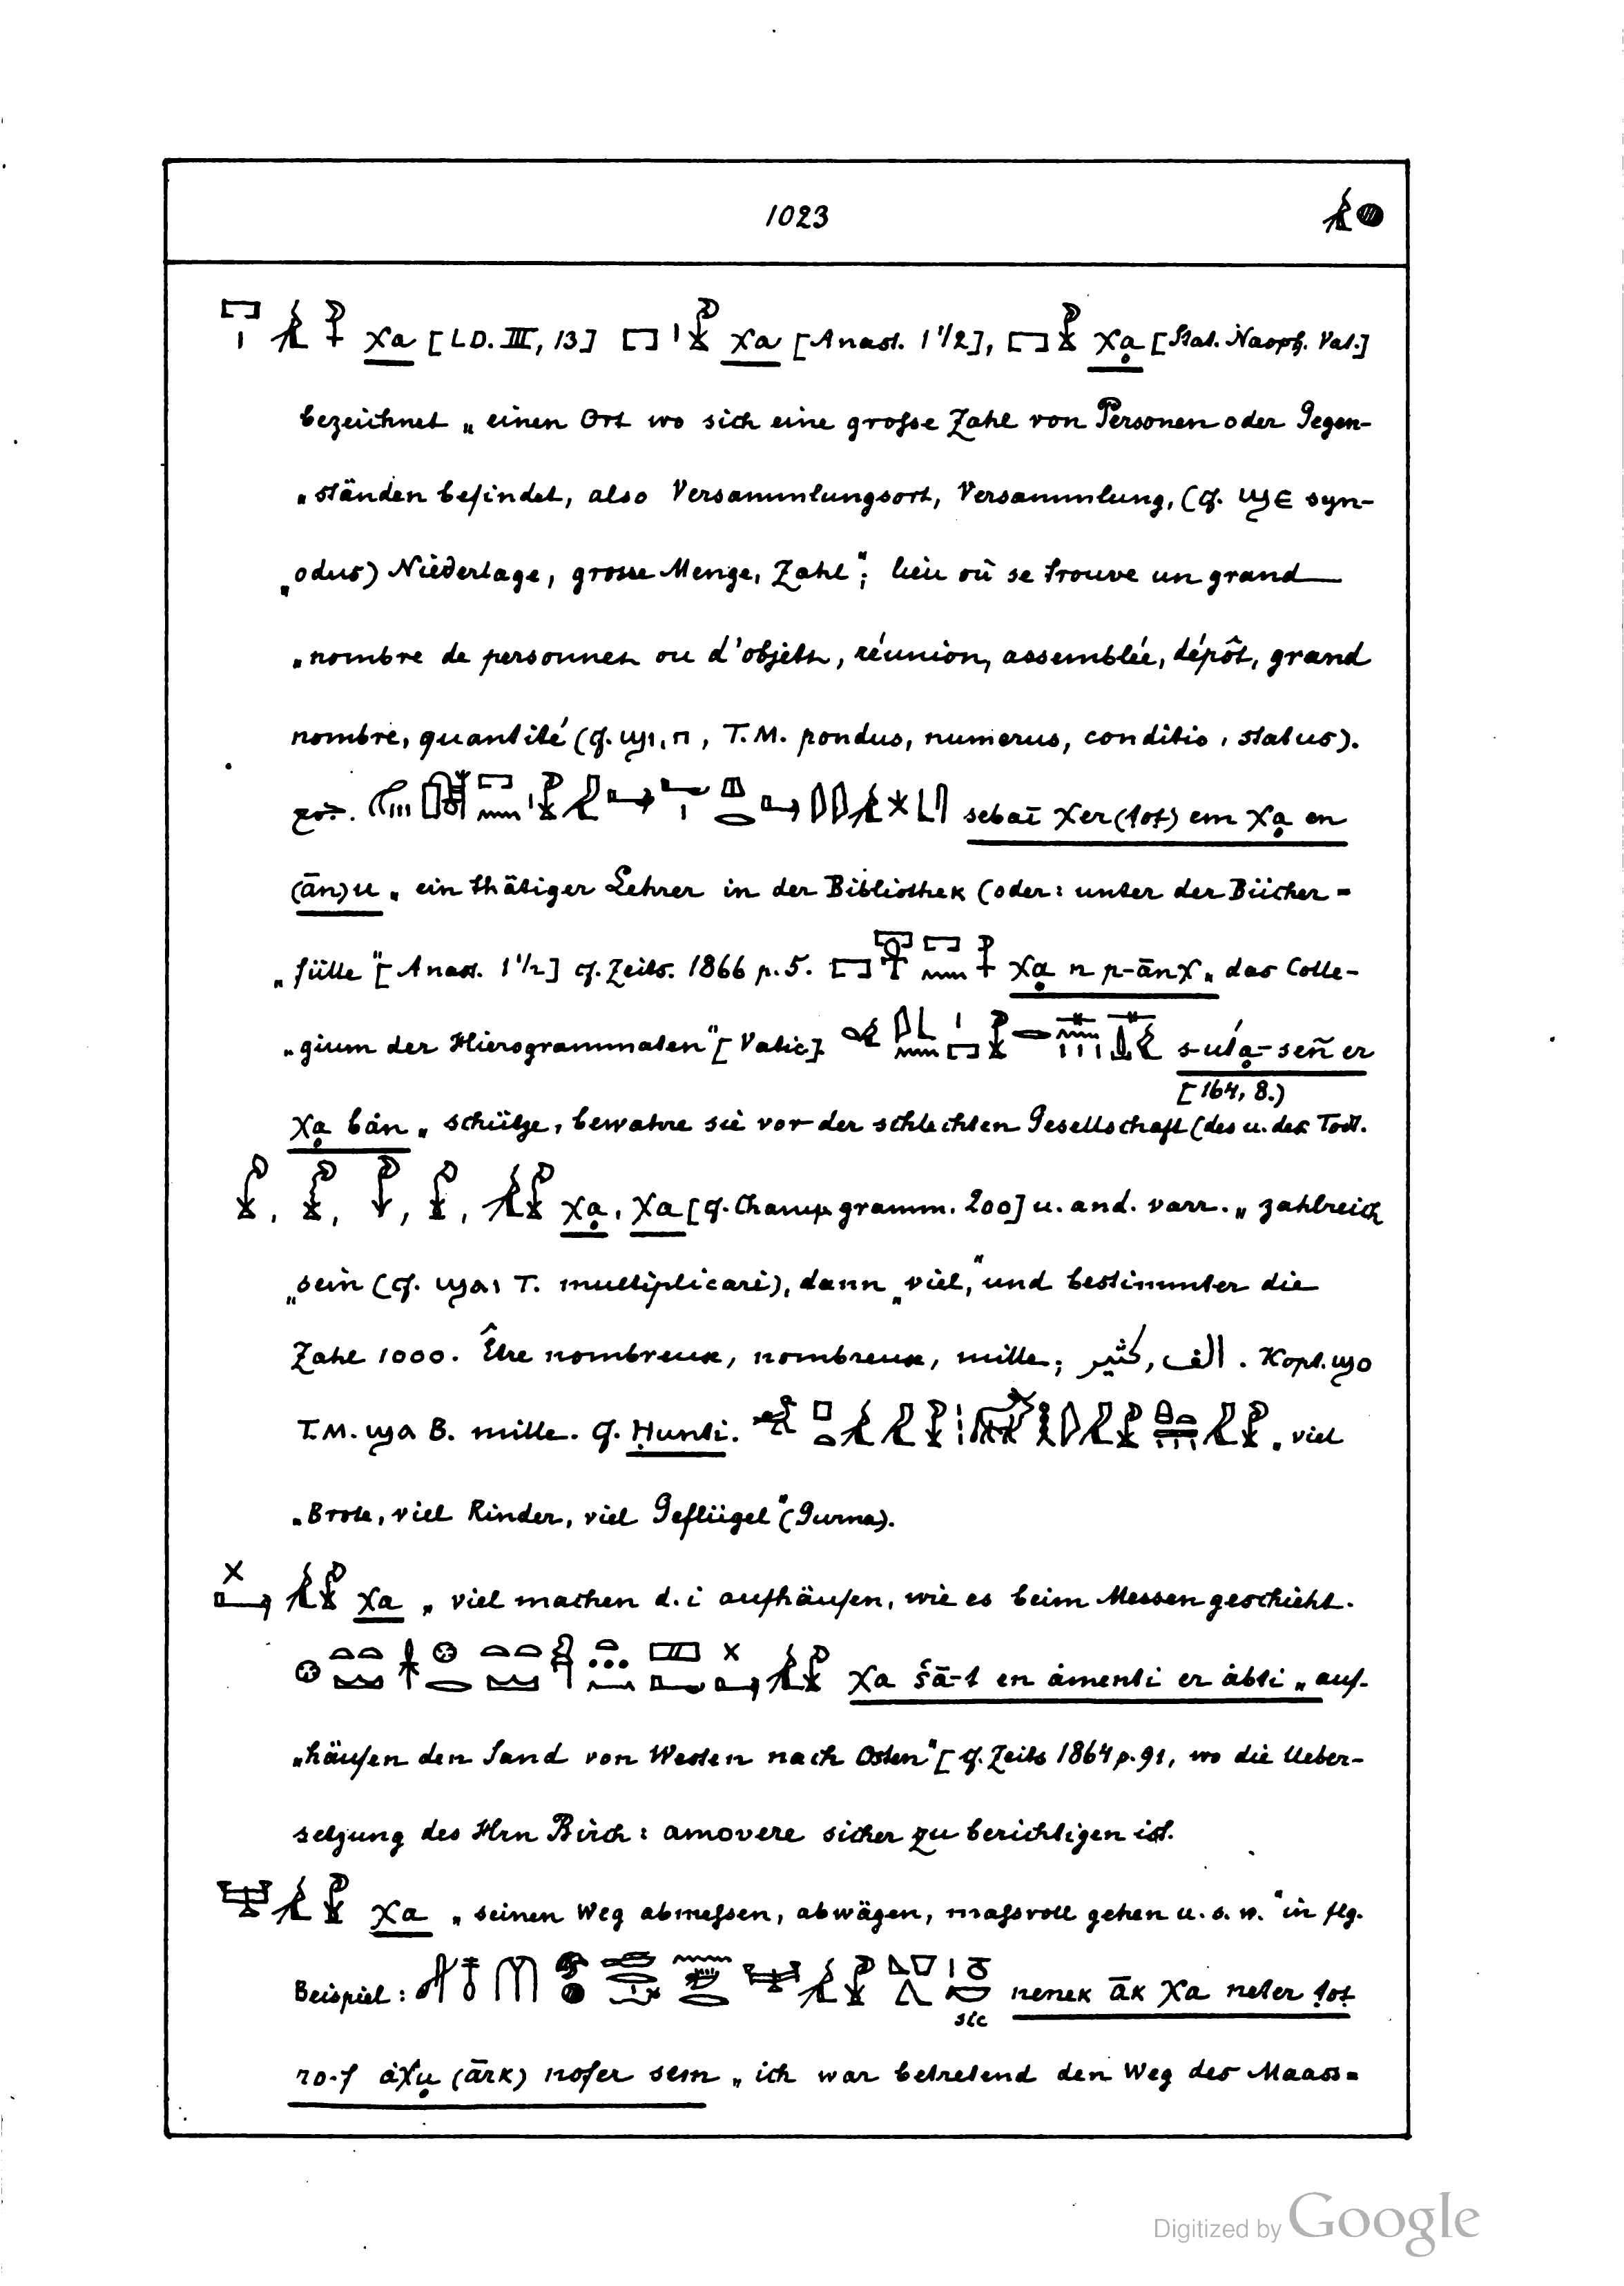 1023
χa [LD. III, 13] χa [Anast. 1 1/2], χạ [Stat. Naoph. Vat.]
bezeichnet „einen Ort wo sich eine grofse Zahl von Personen oder Gegen-
„ständen befindet, also Versammlungsort, Versammlung, (cf. ϣϵ syn-
„odus) Niederlage, grosse Menge, Zahl“; lieu où se trouve un grand
„nombre de personnes ou d'objets, réunion, assemblée, dépôt, grand
nombre, quantité (cf. ϣι, π, T.M. pondus, numerus, conditio, status).
sebaī χer(tot) em χạ en
(ān)u „ein thätiger Lehrer in der Bibliothek (oder: unter der Bücher=
„fülle“ [Anast. 1 1/2] cf. Zeits. 1866 p. 5. χạ n p-ānχ „das Colle-
„gium der Hierogrammaten“ [Vatic]. s-ut'ạ-sen er
[164, 8.)
χạ bȧn „schütze, bewahre sie vor der schlechten Gesellschaft (des u. des Todt.
, , , , χạ, χa [cf. Champ. gramm. 200] u. and. varr. „zahlreich
„sein (cf. ϣαι T. multiplicari), dann „viel,“ und bestimmter die
Zahl 1000. Être nombreux, nombreux, mille; كثير, الف. Kopt. ϣο
T.M. ϣα B. mille. cf. Ḥunti. „viel
„Brote, viel Rinder, viel Geflügel“ (Gurna).
χa „viel machen d. i aufhäufen, wie es beim Messen geschieht.
χa šā-t en ȧmenti er ȧbti „auf-
„häufen den Sand von Westen nach Osten“ [cf. Zeits 1864 p. 91, wo die Ueber-
setzung des Hrn Birch: amovere sicher zu berichtigen ist.
χa „seinen Weg abmessen, abwägen, mafsvoll gehen u. s. w.“ in flg.
Beispiel: nenek āk χa neter tot
sic
ro-f ȧχụ (ārk) nofer sem „ich war betretend den Weg des Maass=
Digitized by Google